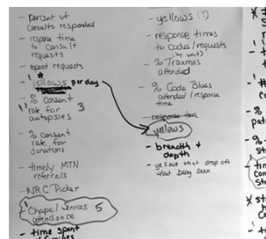 - percent of
consults responded
- response time
to consult
requests
- repeat requests
- # yellows per day
- % consent
rate for
autopsies 3
- % consent
rate for
donations
- timely MTN
referrals
- NRC Picker
- Chapel services 5
attendance
- time spent
- yellows (?)
- response times
to codes/requests
(by unit)
- % Traumas
attended
- % Code Blues
attended/response
time
- response time
- yellows
- breadth +
depth
- yellows that drop off
w/out being seen